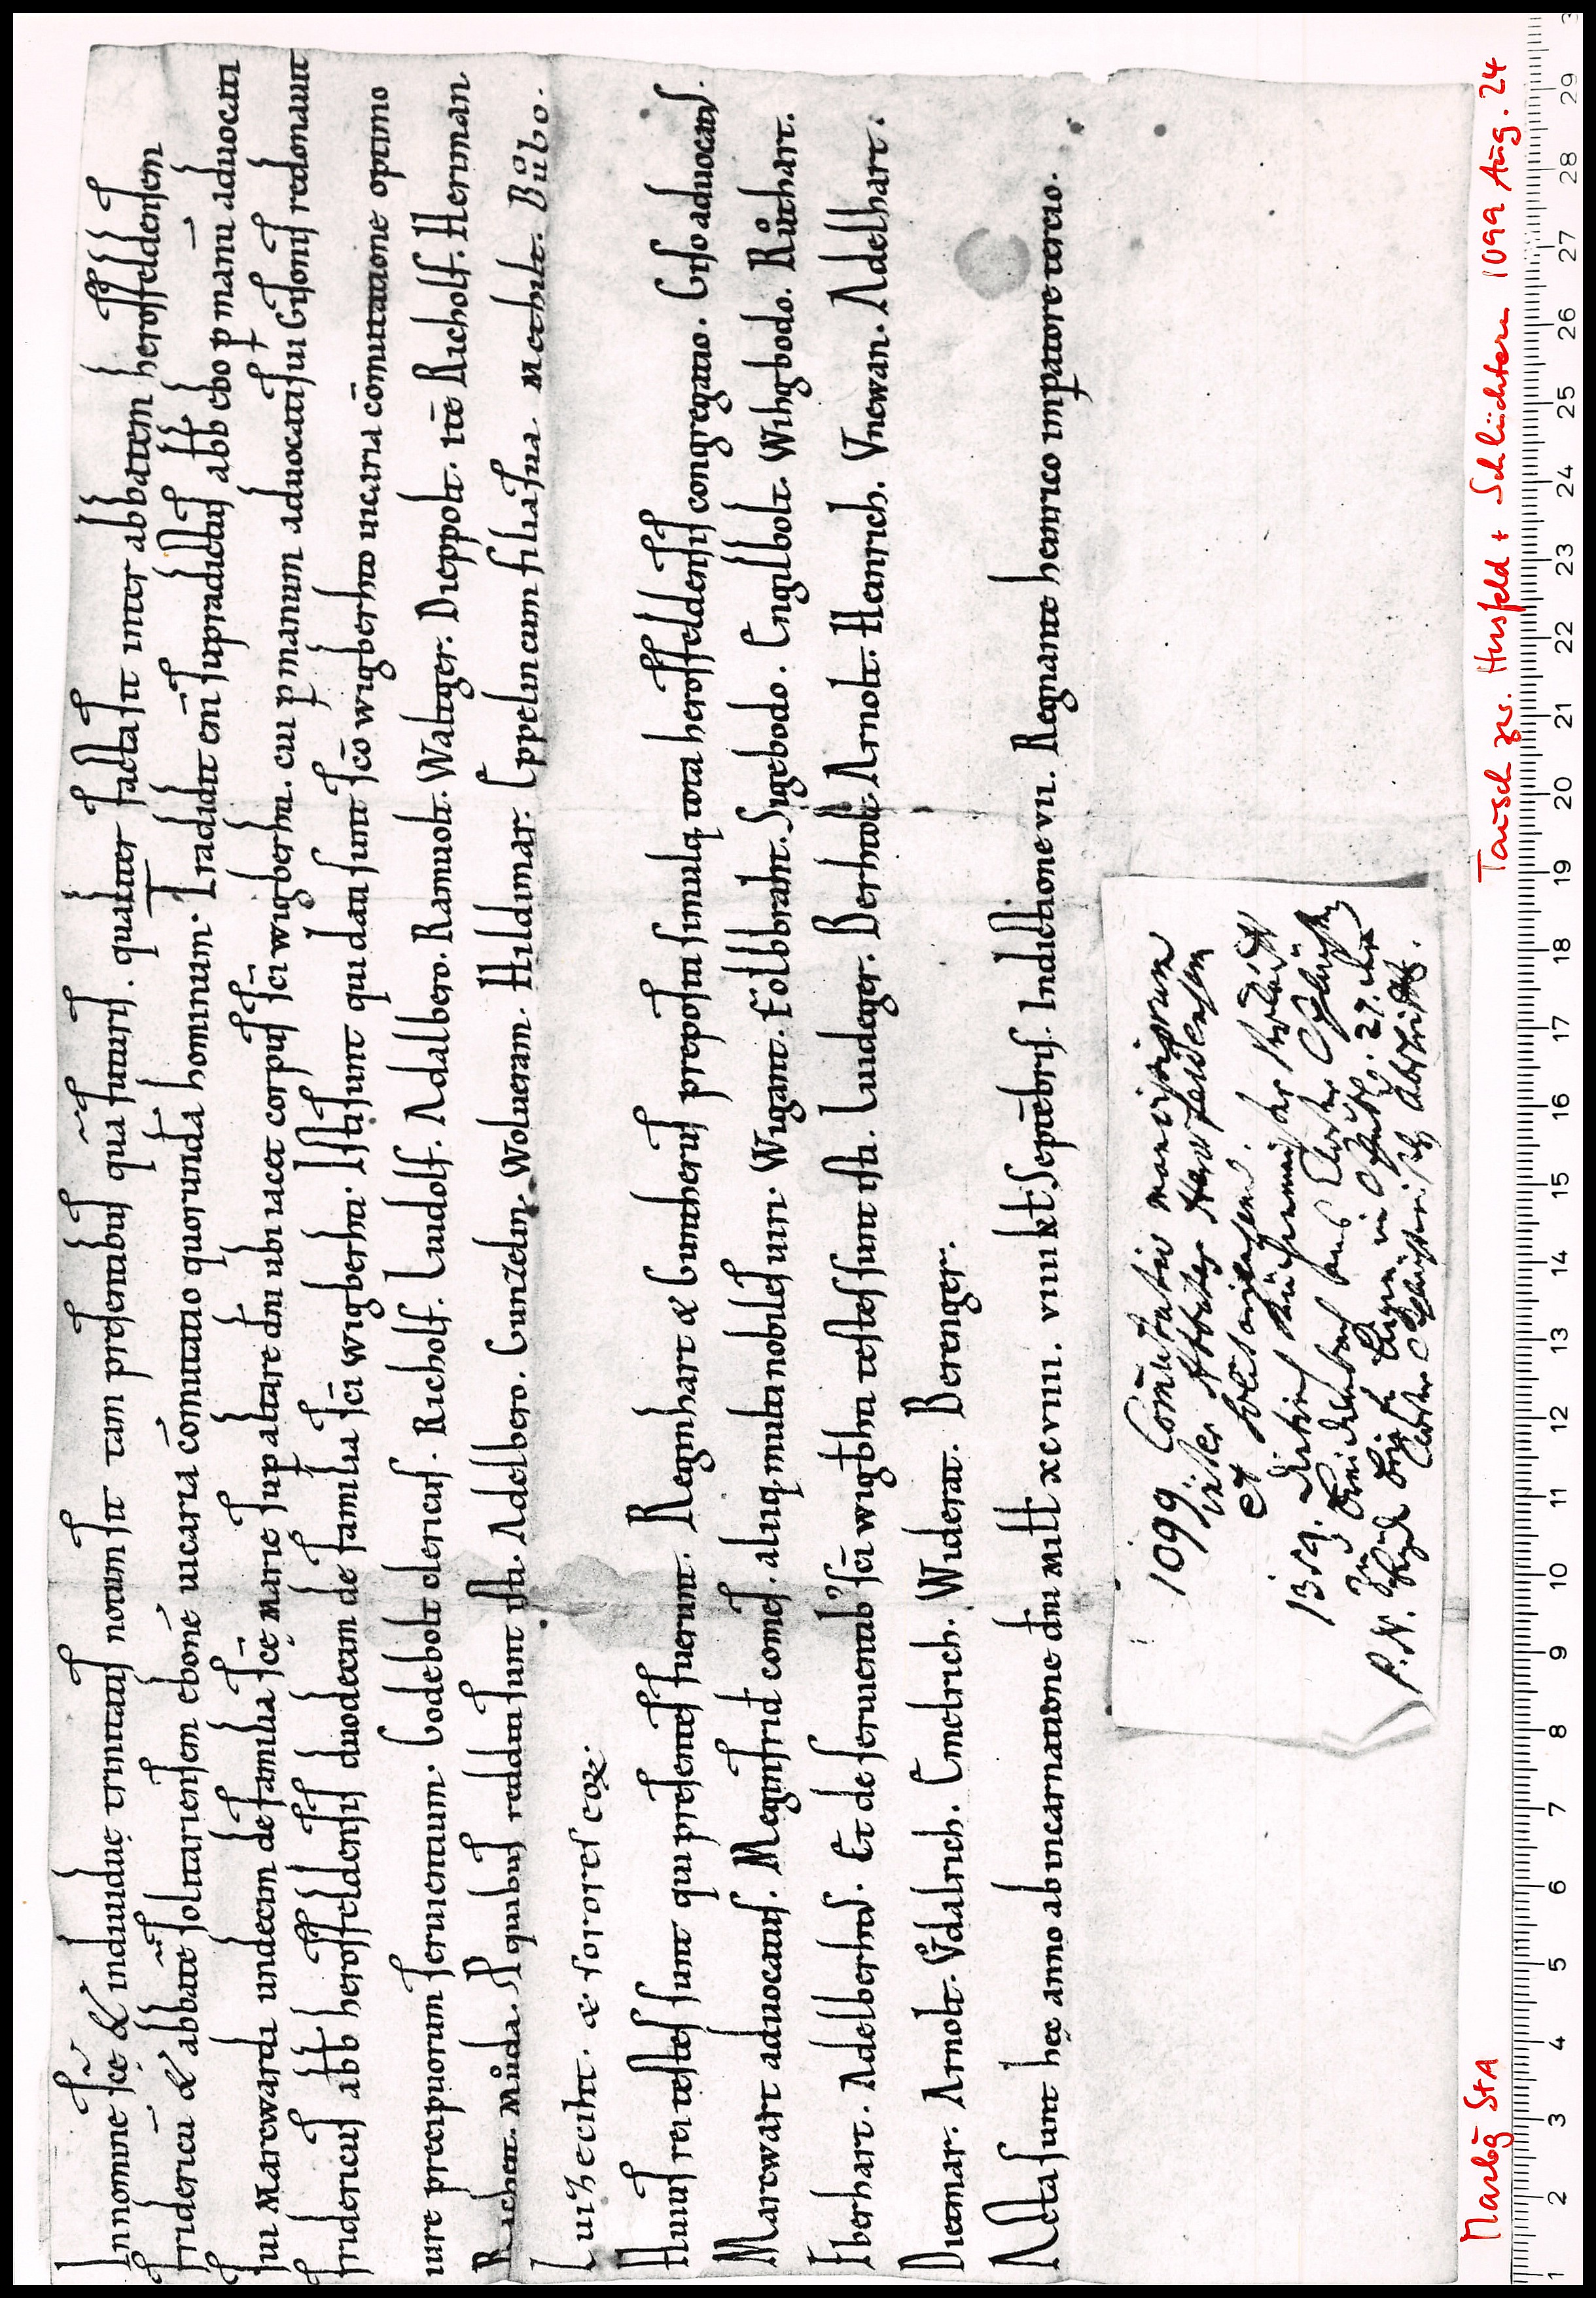 In nomine scę & indiuiduę trinitatis notum sit tam presentibus quā futuris. qualiter facta sit inter abbatem herosfeldensem
fridericū & abbate solitariensem ebonē uicaria cōmutatio quorundā hominum. Tradidit eni supradictus abb ebo p manū aduocati
sui Marcwardi undecim de familia scę Marie sup altare dni ubi iacet corpus sci wigberhti. cui p manum aduocati sui Gisonis redonauit
fridericus abb herosfeldensis duodecim de familia sci wigberhti. Isti sunt qui dati sunt sco wigberhto uicaria cōmutatione optimo
iure precipuorum seruientium. Godebolt clericus. Richolf. Ludolf. Adalbero. Ramuolt. Waltger. Dieppolt. itē Richolf. Heriman
Richett. Můda. A quibus redditi sunt isti. Adelbero. Gunzelin. Wolueram. Hildimar. Eppelin cum filia sua Methilt. Bůbo.
Luizeciht. & sorores eoꝝ.
Huius rei testes sunt qui presentes fuerunt. Reginhart & Guntherus prepositi simulq tota herosfeldensis congregatio. Giso aduocatus.
Marcwart aduocatus. Meginfrid comes. aliiq multi nobiles uiri. Wigant. Folbbraht. Sigebodo. Engilbolt. Wihgbodo. Růthart.
Eberhart. Adelberhtus. Et de seruientib' sci wigbhti testes sunt isti. Luideger. Berhtolt. Arnolt. Heinrich. Vnewan. Adelhart.
Dietmar. Arnolt. Vdalrich. Emelrich. Widerat. Berenger.
Acta sunt hęc anno ab incarnatione dni Mill xcviiii. viiii kł Septēbris. Indictione vii. Regnante heinrico impatore tercio.
1099. Commutatio mancipiorum
inter Abbates Hersfeldensem
et Solitariensem.
1359.
P. N.
Marbg StA
Tausch zw. Hersfeld + Schlüchtern 1099 Aug. 24
1 2 3 4 5 6 7 8 9 10 11 12 13 14 15 16 17 18 19 20 21 22 23 24 25 26 27 28 29